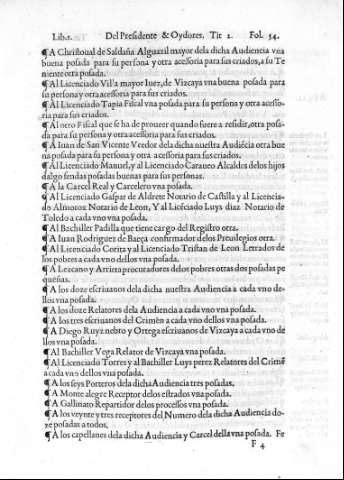 Lib.1. Del Presidente & Oydores. Tit 2. Fol. 54.
¶A Christoual de Saldaña Alguazil mayor dela dicha Audiencia vna
buena posada para su persona y otra acessoria para sus criados, a su Te
niente otra posada.
¶Al Licenciado Vil'a mayor Iuez, de Vizcaya vna buena posada para
su persona y otra acessoria para sus criados.
¶Al Licenciado Tapia Fiscal vna posada para su persona y otra acesso-
ria para sus criados.
¶Al otro Fiscal que se ha de proueer quando fuere a residir, otra posa-
da para su persona y otra acessoria para sus criados.
¶A Iuan de San Vicente Veedor dela dicha nuestra Audiẽcia otra bue
na posada para su persona y otra acessoria para sus criados.
¶Al Licenciado Manuel, y al Licenciado Carauco Alcaldes delos hijos
dalgo sendas posadas buenas para sus personas.
¶A la Carcel Real y Carcelero vna posada.
¶Al Licenciado Gaspar de Aldrete Notario de Castilla y al Licencia-
do Almoroz Notario de Leon, Y al Licẽciado Luys diaz Notario de
Toledo a cada vno vna posada.
¶Al Bachiller Padilla que tiene cargo del Registro otra.
¶A Iuan Rodriguez de Baeça confirmador delos Preuilegios otra.
¶Al Licenciado Çorita y al Licenciado Tristan de Leon Letrados de
los pobres a cada vno dellos vna posada.
¶A Lezcano y Arrieta procuradores delos pobres otras dos posadas pe
queñas.
¶A los doze escriuanos dela dicha nuestra Audiencia a cada vno de-
llos vna posada.
¶A los doze Relatores dela Audiencia a cada vno vna posada.
¶A los tres escriuanos del Crimẽ a cada vno dellos vna posada.
¶A Diego Ruyz nebro y Ortega escriuanos de Vizcaya a cada vno de
llos vna posada.
¶Al Bachiller Vega Relator de Vizcaya vna posada.
¶Al Licenciado Torres y al Bachiller Luys perez Relatores del Crimẽ
a cada vno dellos vna posada.
¶A los seys Porteros dela dicha Audiencia tres posadas.
¶A Monte alegre Receptor delos estrados vna posada.
¶A Gallinato Repartidor delos processos vna posada.
¶A los veynte y tres receptores del Numero dela dicha Audiencia do-
ze posadas a todos.
¶A los capellanes dela dicha Audiencia y Carcel della vna posada. Fe
F 4